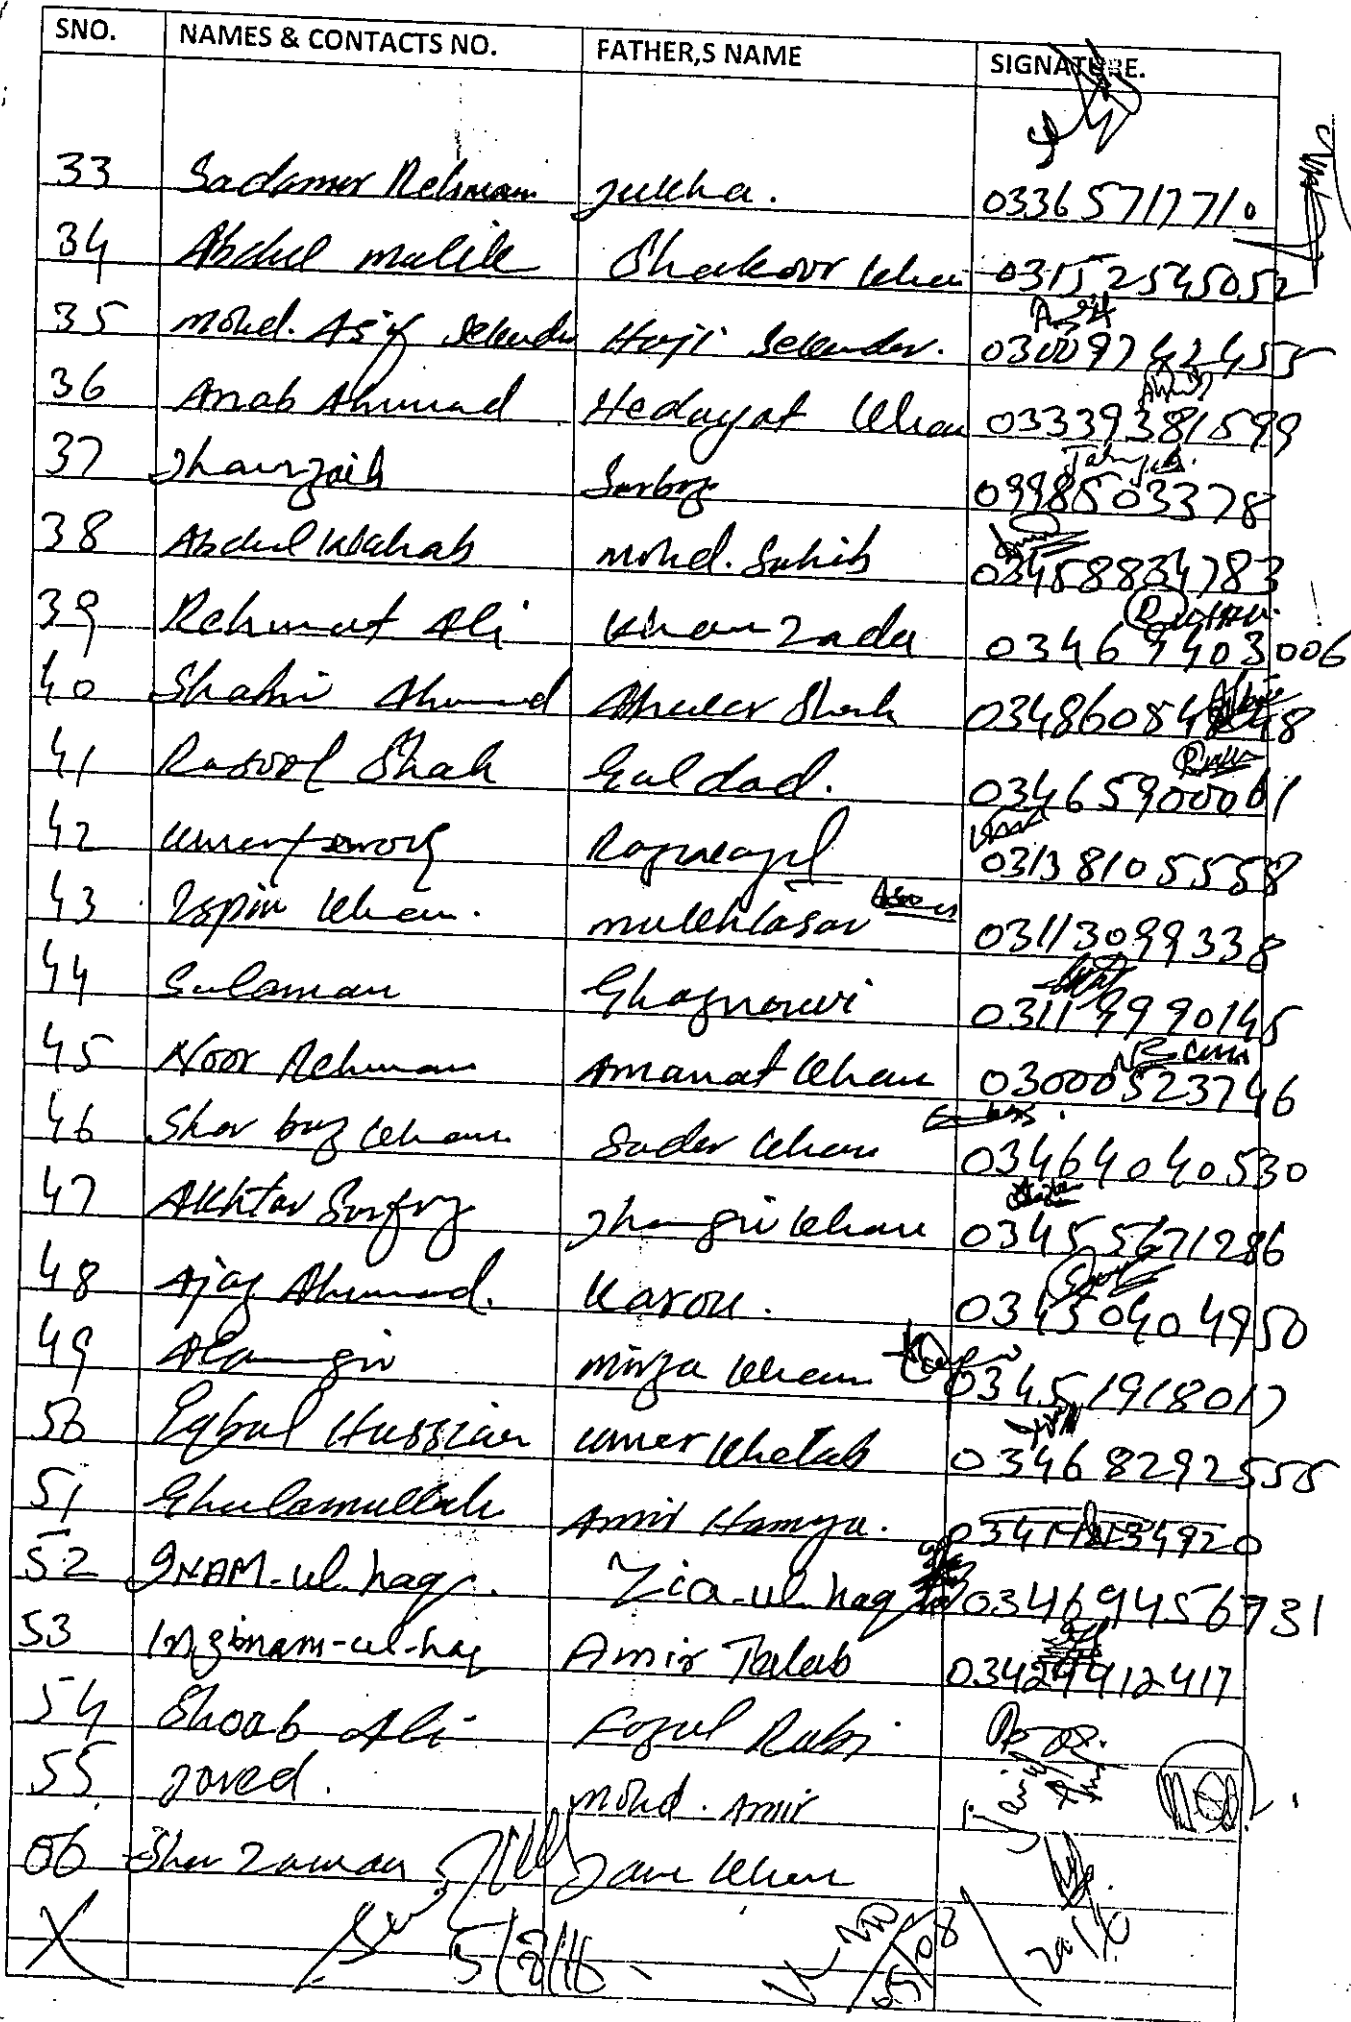 SNO. NAMES & CONTACTS NO. FATHER,S NAME SIGNATURE.
33 Sadamur Rehman Jukha. 03365717710
34 Abdul Malik Shakoor Khan 03152545052
35 Mohd. Asif Sekander Haji Sekander. 03009742455
36 Arab Ahmad Hedayat Khan 03339381599
37 Jhanzaib Sarbaz 0998503378
38 Abdul Wahab Mohd. Sahib 03458834783
39 Rehmat Ali Khan Zada 03469403006
40 Ahmad Shah
41 Rasool Shah Guldad. 03465900061
42 Umer farooq 03138105558
43 Ispin Khan. Mukhtasar 03113099338
44 Sulaman Ghaznawi 03119990145
45 Noor Rehman Amanat Khan 03000523746
46 Sher baz Khan Sader Khan 03464040530
47 Akhtar Sarfraz Jhangir Khan 03455671286
48 Ajaz Ahmad. Karou. 03450404950
49 Alamgir Mirza Khan 03451918017
50 Iqbal Hussian Umer Khetab 03468292555
51 Ghulamullah Amir Hamza.
52 INAM-ul-haq. Zia-ul-haq 03469456731
53 -ul-haq Amir Talab 03429912417
54 Shoab Ali Fazul Rabi
55 Javed. Mohd. Amir
56 Sher Zaman Jan Khan
X 5/8/16 05/08/2016